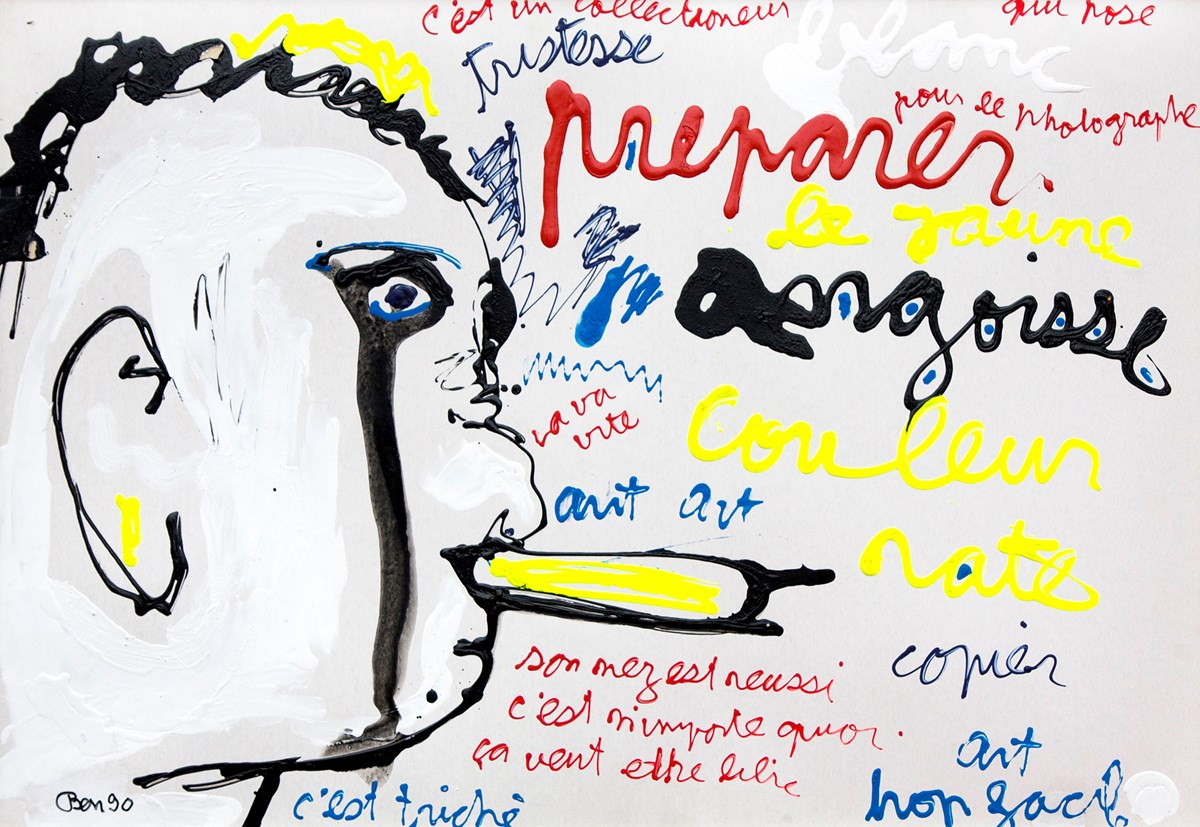 c'est un collectioneur qui pose
tristesse
blanc
pour le photographe
preparer
le jaune
angoisse
va va
vite
couleur
art art
rate
copier
son nez est reussi
c'est n'importe quoi.
ça veut ettre
art
c'est triché
trop facil
Ben 90